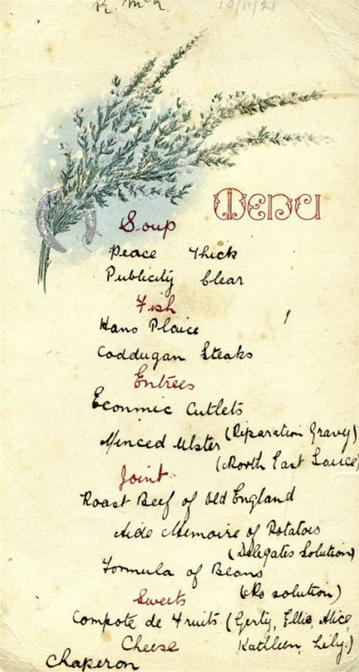 R. McG.
10/11/21
Menu
Soup
Peace Thick
Publicity Clear
Fish
Hans Plaice
Coddugan Steaks
Entrees
Econmic Cutlets
Minced Ulster (Riparation Gravy)
(North East Sauce)
Joint
Roast Beef of Old England
Aide Memoire of Potatoes
(Deligates Solution)
Formula of Beans
(No solution)
Sweets
Compote de Fruits (Gerty, Ellie, Alice
Kathleen, Lily.)
Cheese
Chaperon